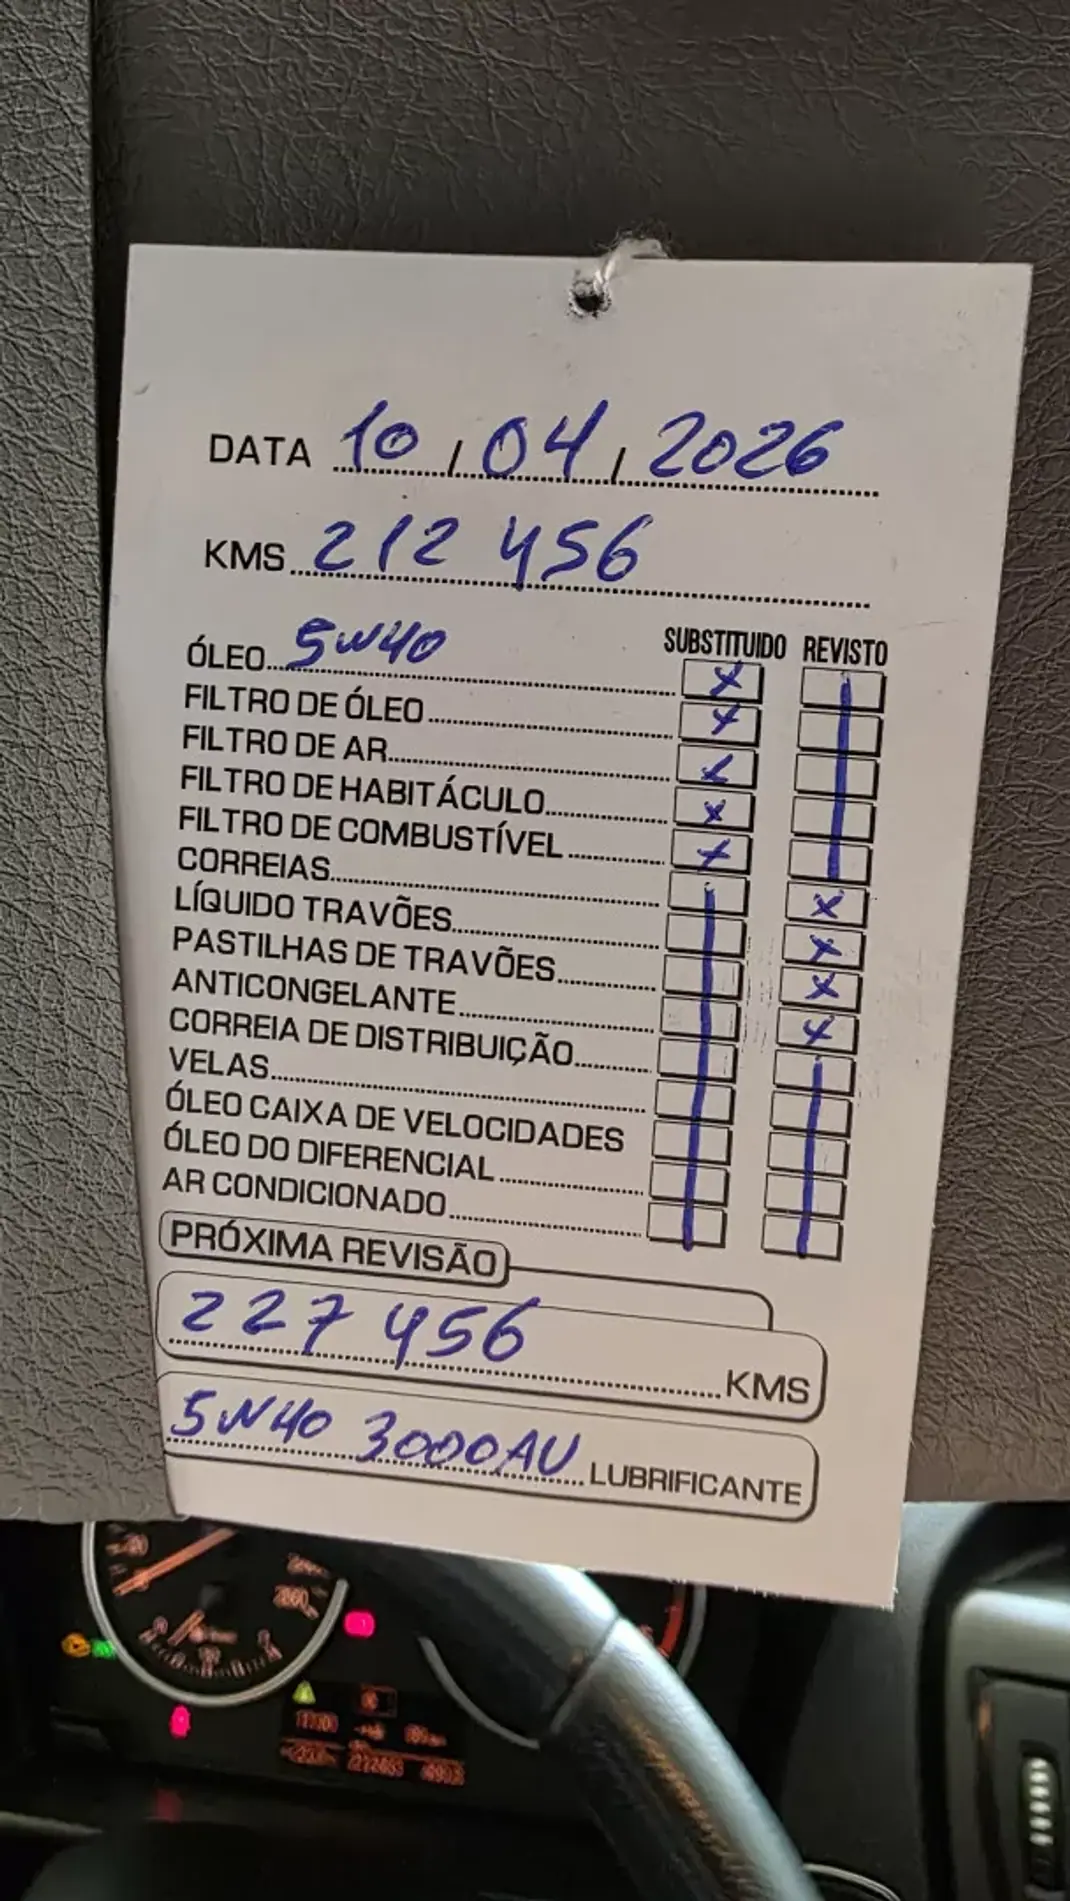 DATA 10 / 04 / 2026
KMS 212 456
SUBSTITUIDO REVISTO
ÓLEO 5W40 X
FILTRO DE ÓLEO X
FILTRO DE AR X
FILTRO DE HABITÁCULO X
FILTRO DE COMBUSTÍVEL X
CORREIAS X
LÍQUIDO TRAVÕES X
PASTILHAS DE TRAVÕES X
ANTICONGELANTE X
CORREIA DE DISTRIBUIÇÃO
VELAS
ÓLEO CAIXA DE VELOCIDADES
ÓLEO DO DIFERENCIAL
AR CONDICIONADO
PRÓXIMA REVISÃO
227 456 KMS
5W40 3000AV LUBRIFICANTE